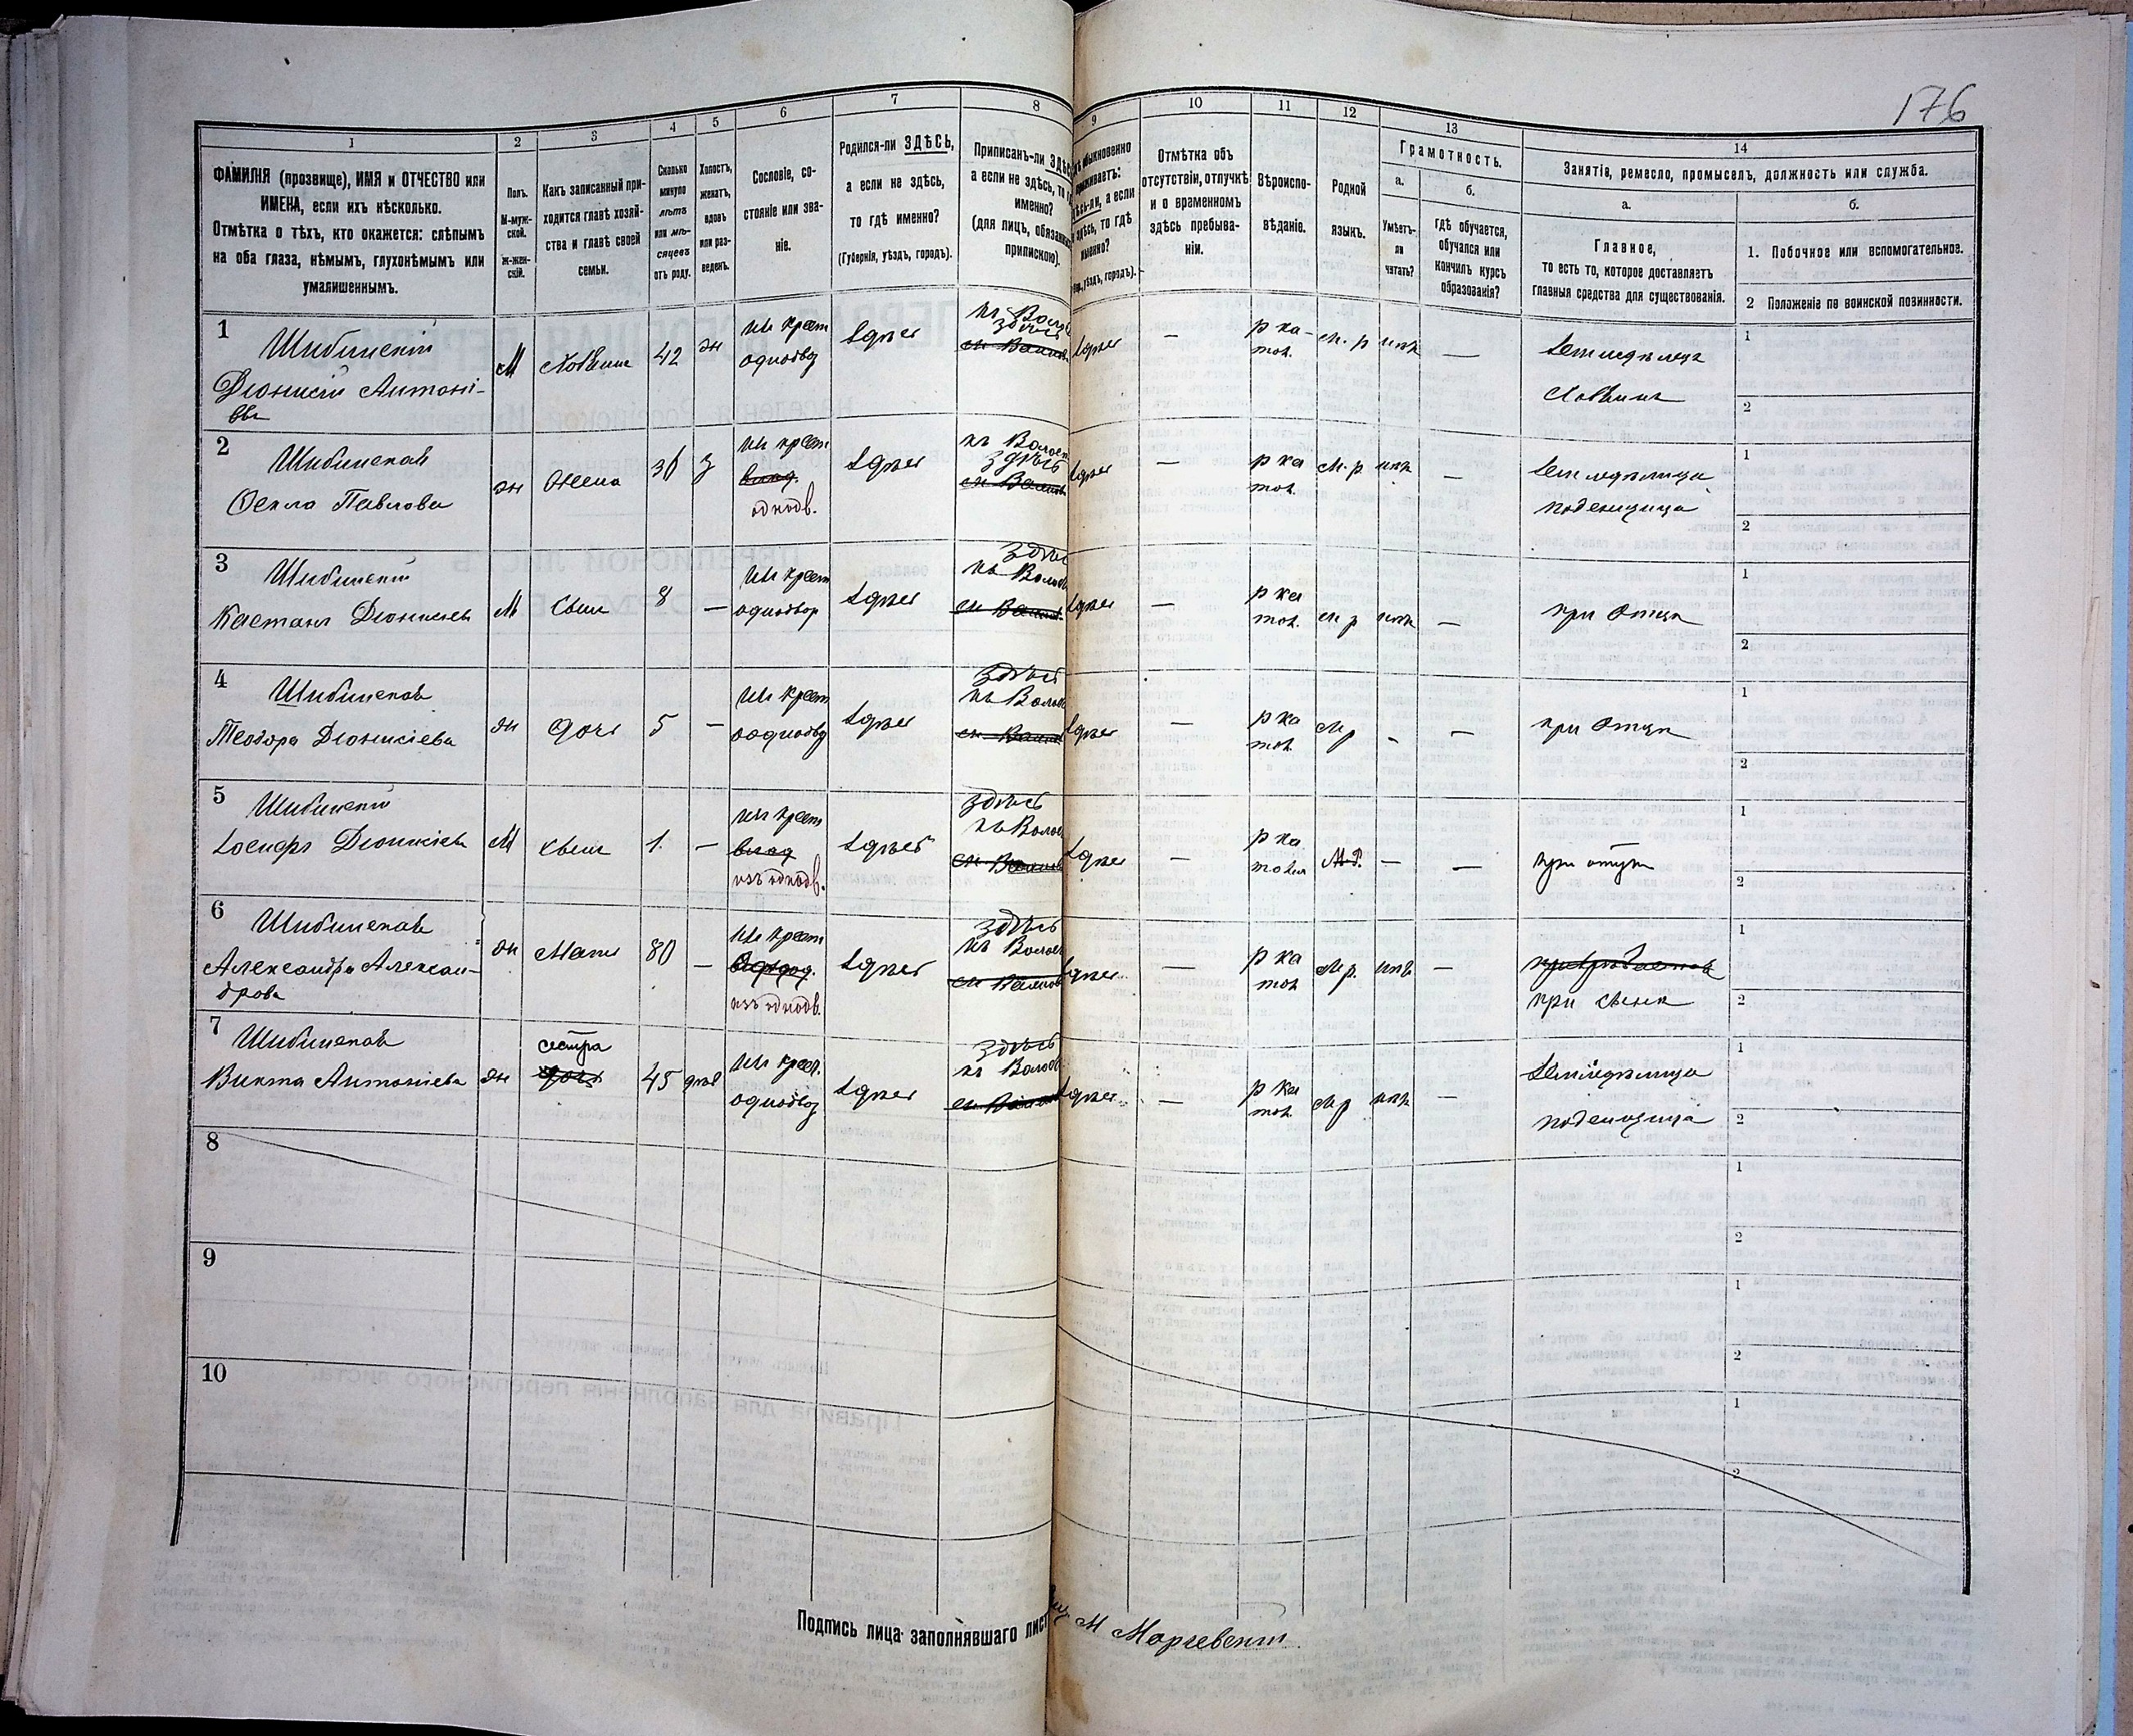 176
1
2
3
4
5
6
7
8
9
10
11
12
13
14
ФАМИЛІЯ (прозвище), ИМЯ и ОТЧЕСТВО или
ИМЕНА, если ихъ нѣсколько.
Отмѣтка о тѣхъ, кто окажется: слѣпымъ
на оба глаза, нѣмымъ, глухонѣмымъ или
умалишеннымъ.
Полъ.
М-муж-
ской.
ж-жен-
скій.
Какъ записанный при-
ходится главѣ хозяй-
ства и главѣ своей
семьи.
Сколько
минуло
лѣтъ
или мѣ-
сяцевъ
отъ роду.
Холостъ,
женатъ,
вдовъ
или раз-
веденъ.
Сословіе, со-
стояніе или зва-
ніе.
Родился-ли ЗДѢСЬ,
а если не здѣсь,
то гдѣ именно?
(Губернія, уѣздъ, городъ).
Приписанъ-ли
а если не здѣсь, то
именно?
(для лицъ,
припискою).
обыкновенно
а если
здѣсь, то гдѣ
именно?
уѣздъ, городъ).
Отмѣтка объ
отсутствіи, отлучкѣ
и о временномъ
здѣсь пребыва-
ніи.
Вѣроиспо-
вѣданіе.
Родной
языкъ.
Грамотность.
а.
Умѣетъ-
ли
читать?
б.
гдѣ обучается,
обучался или
кончилъ курсъ
образованія?
Занятіе, ремесло, промыселъ, должность или служба.
а.
Главное,
то есть то, которое доставляетъ
главныя средства для существованія.
б.
1. Побочное или вспомогательное.
2 Положеніе по воинской повинности.
1
Шибинскій
Діонисій Антоні-
евъ
М
Хозяинъ
42
ж
изъ крест
однодв
здѣсь
здѣсь
здѣсь
—
р ка-
тол.
м. р
нѣт
—
земледѣлецъ
Хозяинъ
1
2
2
Шибинская
Фекла Павлова
ж
Жена
36
з
изъ крест
однодв.
здѣсь
здѣсь
здѣсь
—
р ка
тол.
м. р
нѣт
—
земледѣлица
поденщица
1
2
3
Шибинскій
Касtанъ Діонисіевъ
М
сынъ
8
—
изъ крест
однодвор
здѣсь
здѣсь
здѣсь
—
р ка
тол.
м р
нѣт
—
при Отцѣ
1
2
4
Шибинская
Теодора Діонисіева
ж
дочь
5
—
изъ крест
однодв
здѣсь
здѣсь
здѣсь
—
р ка
тол.
м р
-
—
при Отцѣ
1
2
5
Шибинскій
Іосифъ Діонисіевъ
М
сынъ
1.
—
изъ крест
изъ однодв.
здѣсь
здѣсь
здѣсь
—
р ка
тол
М.Р.
—
—
при отцѣ
1
2
6
Шибинская
Александра Алексан-
дрова
ж
Мать
80
—
изъ крест
изъ однодв.
здѣсь
здѣсь
здѣсь
—
р ка
тол
м р.
нѣт
—
при сынѣ
1
2
7
Шибинская
Викта Антоніева
ж
сестра
дочь
45
дѣв
изъ крест.
однодв
здѣсь
здѣсь
здѣсь
—
р ка
тол.
м р
нѣт
—
земледѣлица
поденщица
1
2
8
1
2
9
1
2
10
1
2
Подпись лица заполнявшаго лист
М